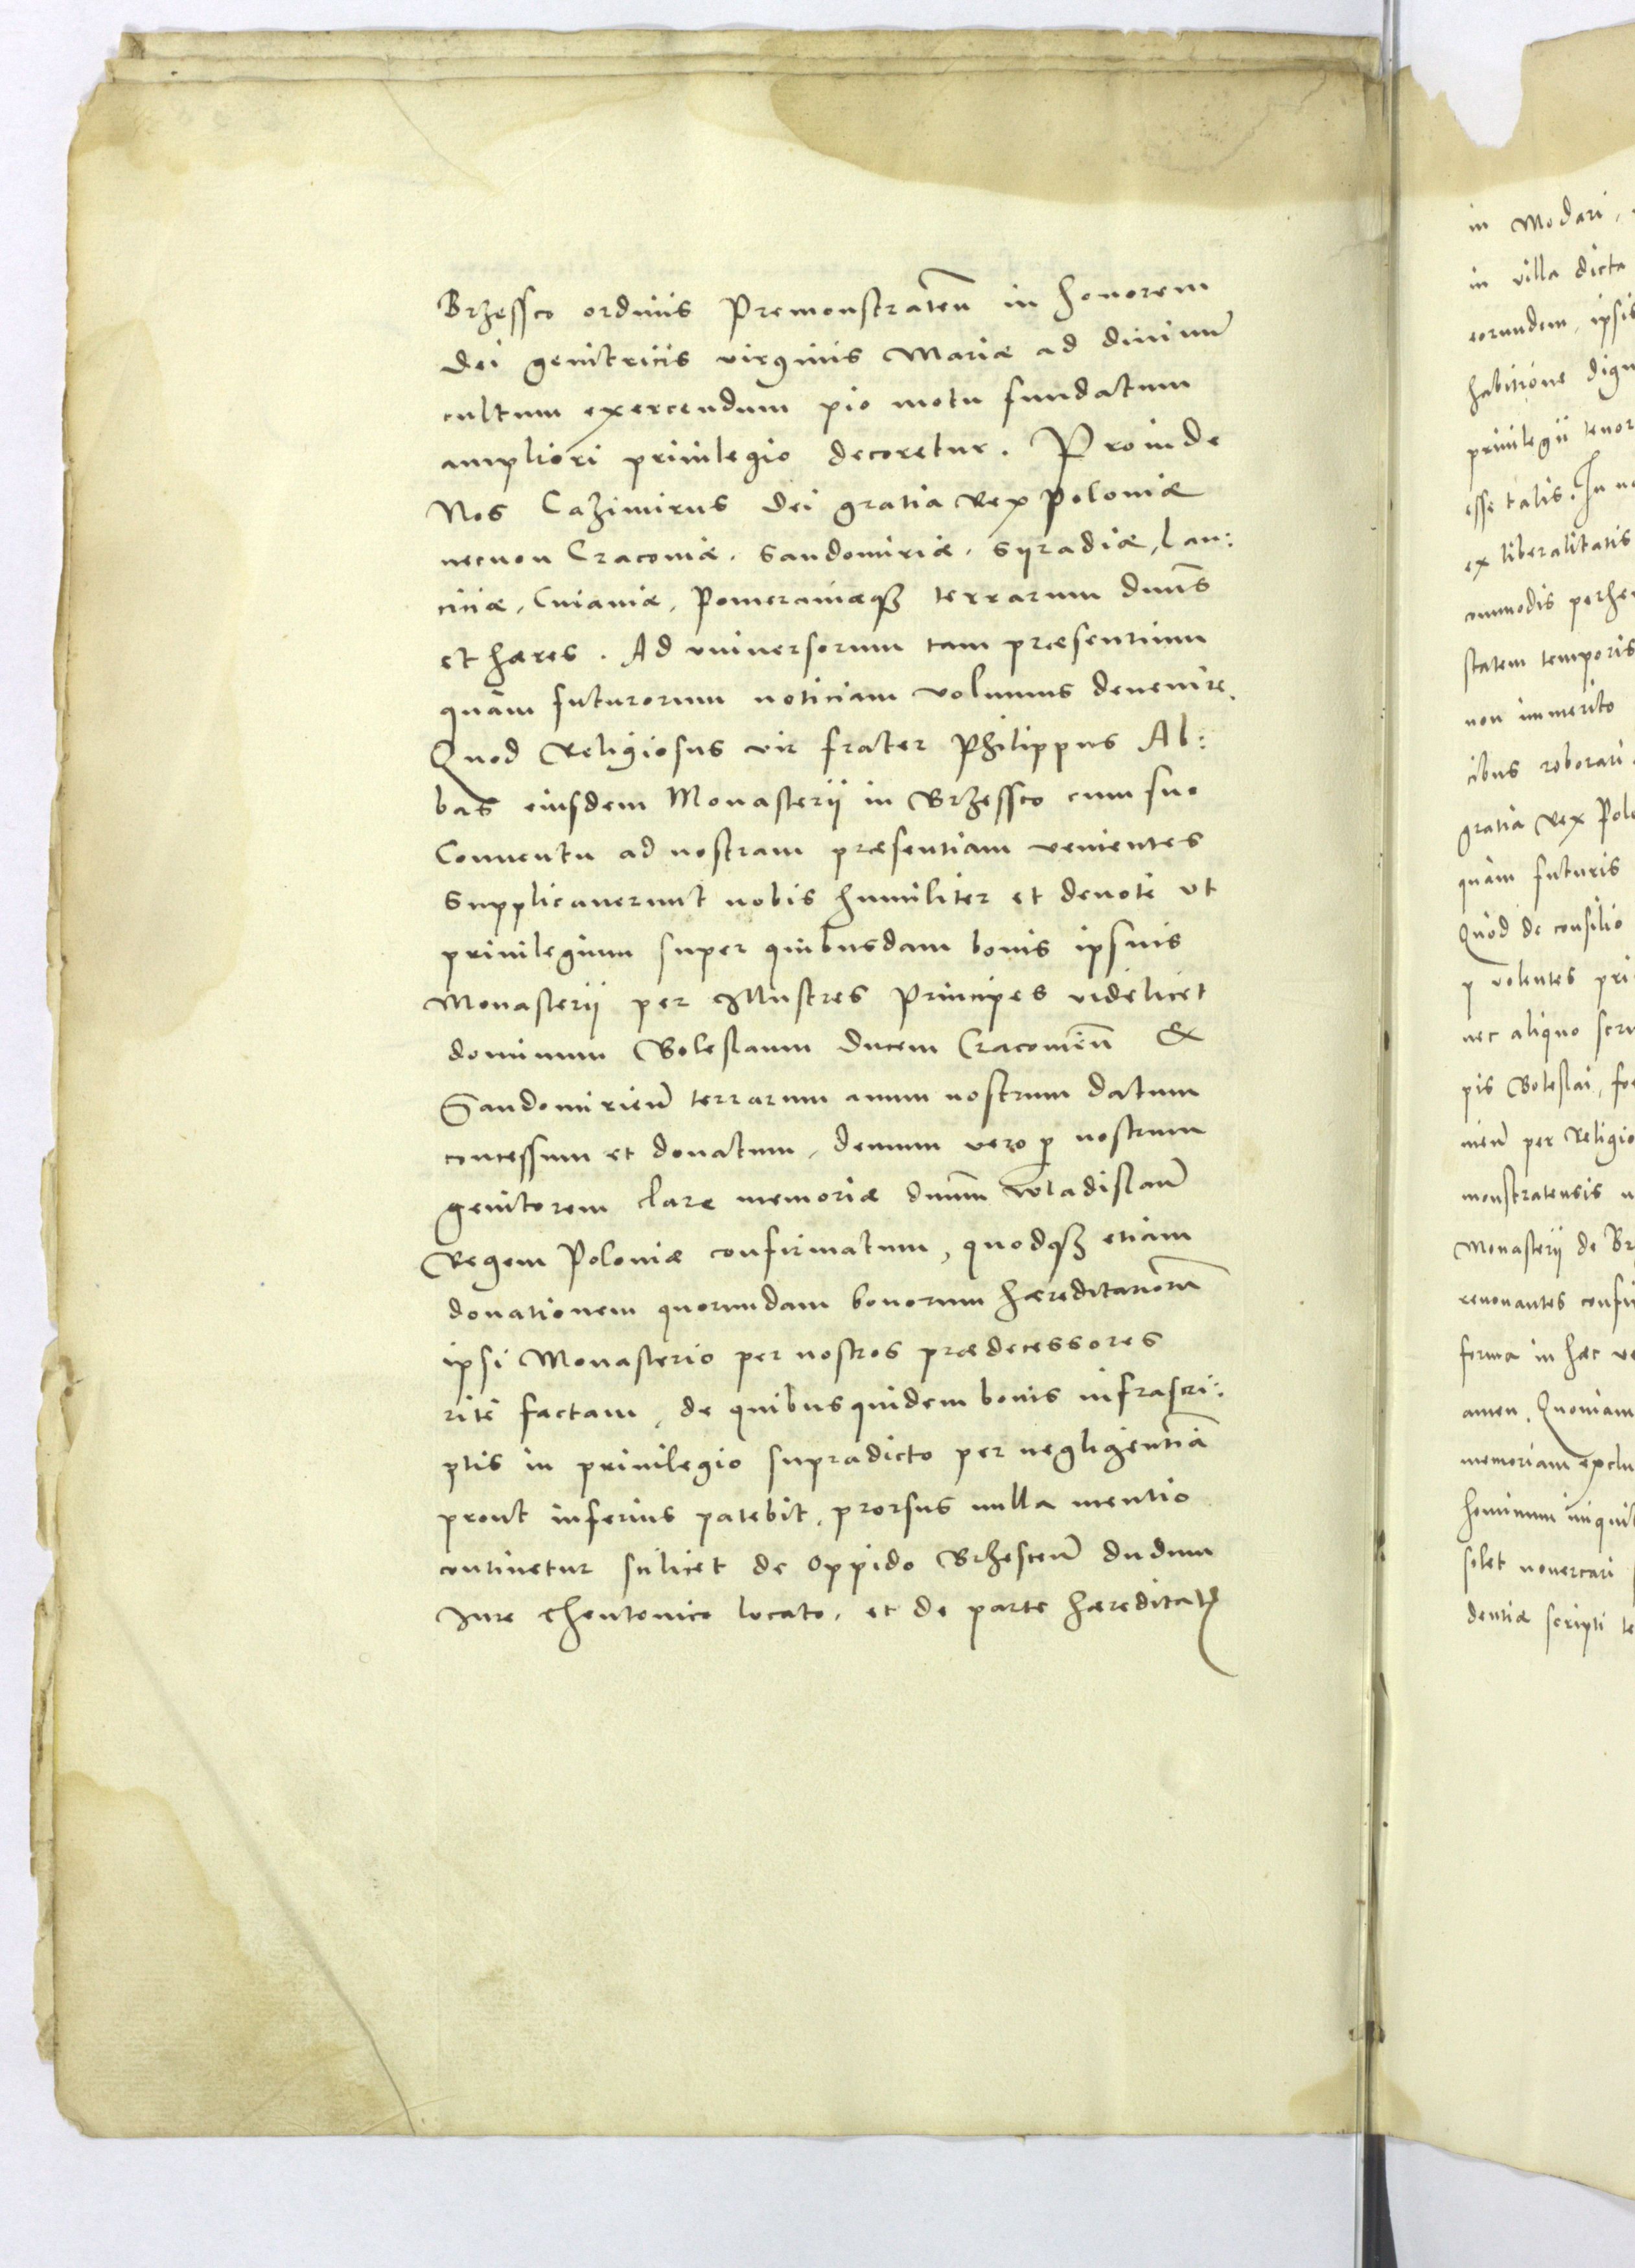 Brzessco ordinis Premonstrateñ in honorem
Dei genitricis virginis Mariæ ad diuinũ
cultum exercendum pio motu fundatum
ampliori priuilegio decoretur. Proinde
Nos Cazimirus Dei gratia Rex Poloniæ
necnon Cracouiæ. Sandomiriæ. Syradiæ, Lan:
ciciæ, Cuiauiæ, Pomeraniæqꝫ terrarum dñus
et hæres. Ad vniuersorum tam præsentium
quàm futurorum noticiam volumus deuenire.
Quod Religiosus vir frater Philippus Ab:
bas eiusdem Monasterii in Brzessco cum suo
Conuentu ad nostram præsentiam venientes
Supplicauerunt nobis humiliter et deuotè vt
priuilegium super quibusdam bonis ipsius
Monasterij per Illustres Principes videlicet
dominum Boleslaum Ducem Cracouieñ &
Sandomirieñ terrarum auum nostrum datum
concessum et donatum, demum vero ꝑ nostrum
genitorem claræ memoriæ dñum Wladislaũ
Regem Poloniæ confirmatum, quodqꝫ etiam
donationem quorundam bonorum hæreditariorũ
ipsi Monasterio per nostros prædecessores
ritè factam, de quibusquidem bonis infrascri:
ptis in priuilegio supradicto per negligentiã
prout inferius patebit, prorsus nulla mentio
continetur scilicet de Oppido Brzesceñ dudum
Iure theutonico locato, et de parte hæreditatꝭ
in Modari,
in villa dicta
eorundem, ipsis
habitione
priuilegii
esse talis. In
ex liberalitatis
commodis
statem temporis
non immerito
cibus roborari
gratia Rex
quàm futuris
Quòd de consilio
volentes
nec aliquo
pis Boleslai,
per
monstratensis
Monasterij de
renouantes
forma in hæc
amen. Quoniam
memoriam
hominum
solet nouercari
dentiæ scripti